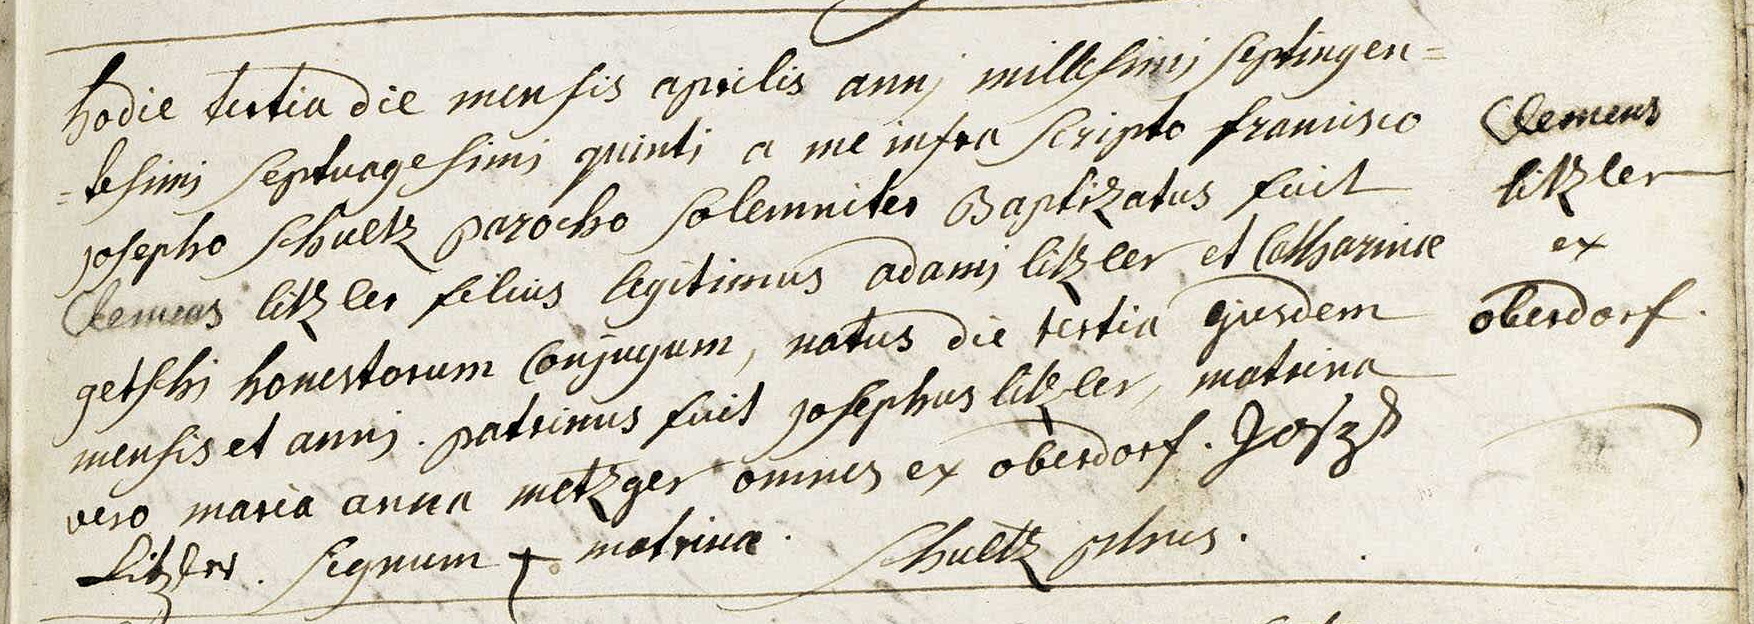 hodie tertia die mensis aprilis annj millesimj septingen=
=tesimj septuagesimj quintj a me infra scripto francisco
josepho schultz parocho solemniter Baptizatus fuit
Clemens litzler filius legitimus adamj litzler et Catharinæ
getschi honestorum Conjugum, natus die tertia ejusdem
mensis et annj. patrinus fuit josephus litzler, matrina
vero maria anna metzger omnes ex oberdorf. Josz
Litzler. Signum + matrinæ. schultz pchus.
Clemens
litzler
ex
oberdorf.